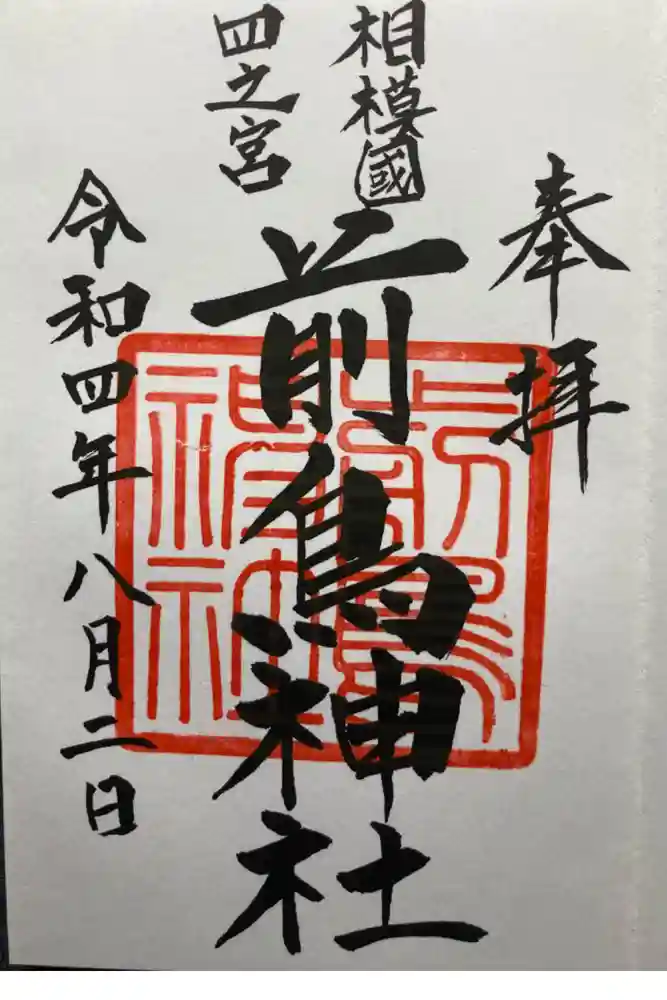 奉拝
相模國
四之宮
前鳥神社
令和四年八月二日
前鳥
神社